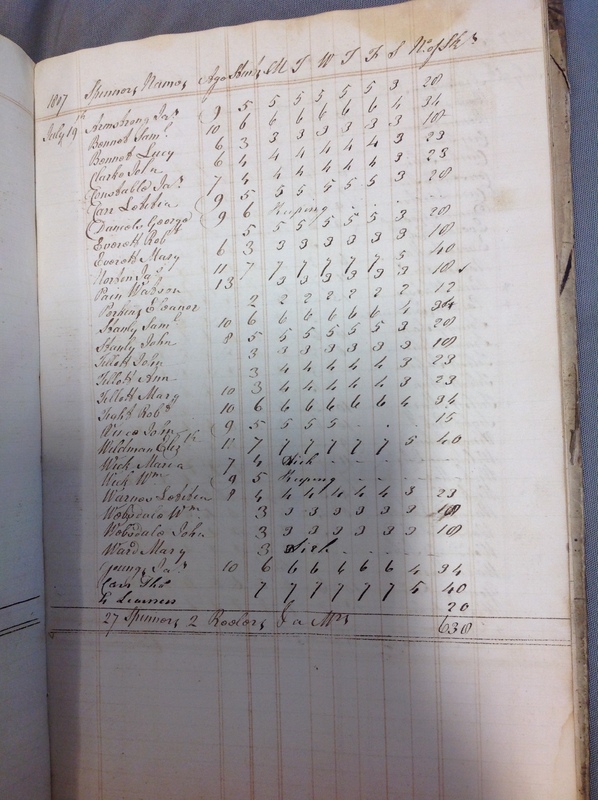 1807 Spinners Names Age Stint M T W T F S No. of Sks
July 19th Armstrong Jas 9 5 5 5 5 5 5 3 28
Bennet Saml 10 6 6 6 6 6 6 4 34
Bennet Lucy 6 3 3 3 3 3 3 3 18
Clarke John 6 4 4 4 4 4 4 3 23
Constable Jas 7 4 4 4 4 4 4 3 23
Carr Letitia 9 5 5 5 5 5 5 3 28
Daniels George 9 6 Keeping - - -
Everett Robt 5 5 5 5 5 5 3 28
Everett Mary 6 3 3 3 3 3 3 3 18
Jas 11 7 7 7 7 7 7 5 40
Pain Watson 13 3 3 3 3 3 3 18
Perkins Eleanor 2 2 2 2 2 2 2 12
Stanly Saml 10 6 6 6 6 6 6 4 34
Stanly John 8 5 5 5 5 5 5 3 28
Tillott John 3 3 3 3 3 3 3 18
Tillott Ann 3 4 4 4 4 4 3 23
Tillott Mary 10 4 4 4 4 4 3 23
Robt 10 6 6 6 6 6 6 4 34
John 9 5 5 5 5 - - - 15
Wildman Elizth 11 7 7 7 7 7 7 5 40
Wick Maria 7 4 Sick - - - -
Wick Wm 9 5 Keeping - - -
Warner Letitia 8 4 4 4 4 4 4 3 23
Wobsdale Wm 3 3 3 3 3 3 3 18
Wobsdale John 3 3 3 3 3 3 3 18
Ward Mary 3 Sick - - - -
Young Jas 10 6 6 6 6 6 6 4 34
Carr Thos 7 7 7 7 7 7 5 40
4 Learners 20
27 Spinners 2 Reelers 630